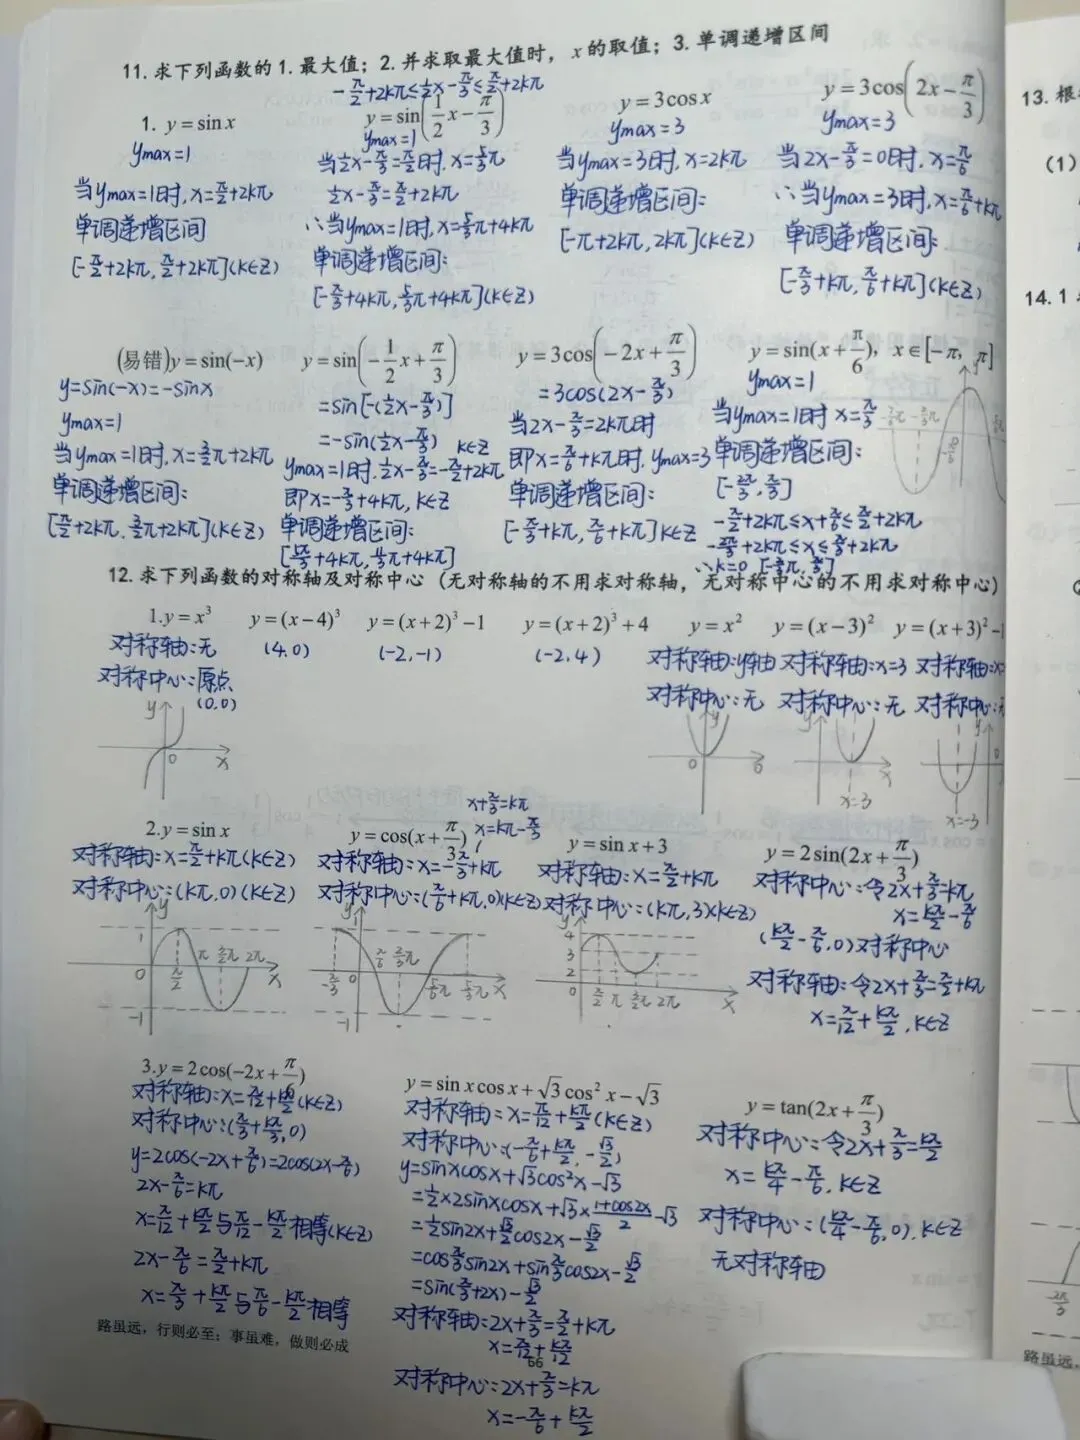 11. 求下列函数的1. 最大值；2. 并求取最大值时，x的取值；3. 单调递增区间
-π/2+2kπ≤1/2x-π/3≤π/2+2kπ
1. y=sinx
ymax=1
当ymax=1时,x=π/2+2kπ
单调递增区间
[-π/2+2kπ,π/2+2kπ](k∈Z)
y=sin(1/2x-π/3)
ymax=1
当1/2x-π/3=π/2时,x=5/3π
1/2x-π/3=π/2+2kπ
∴当ymax=1时,x=5/3π+4kπ
单调递增区间:
[-π/3+4kπ,5/3π+4kπ](k∈Z)
y=3cosx
ymax=3
当ymax=3时,x=2kπ
单调递增区间:
[-π+2kπ,2kπ](k∈Z)
y=3cos(2x-π/3)
ymax=3
当2x-π/3=0时,x=π/6
∴当ymax=3时,x=π/6+kπ
单调递增区间:
[-π/3+kπ,π/6+kπ](k∈Z)
(易错)y=sin(-x)
y=sin(-x)=-sinx
ymax=1
当ymax=1时,x=3/2π+2kπ
单调递增区间:
[π/2+2kπ,3/2π+2kπ](k∈Z)
y=sin(-1/2x+π/3)
=sin[-(1/2x-π/3)]
=-sin(1/2x-π/3) k∈Z
ymax=1时,1/2x-π/3=-π/2+2kπ
即x=-π/3+4kπ,k∈Z
单调递增区间:
y=3cos(-2x+π/3)
=3cos(2x-π/3)
当2x-π/3=2kπ时
即x=π/6+kπ时,ymax=3
单调递增区间:
[-π/3+kπ,π/6+kπ]k∈Z
y=sin(x+π/6)，x∈[-π，π]
ymax=1
当ymax=1时 x=π/3
单调递增区间:
[-2π/3,π/3]
-π/2+2kπ≤x+π/6≤π/2+2kπ
-2π/3+2kπ≤x≤π/3+2kπ
∴k=0 [-2/3π,π/3]
12. 求下列函数的对称轴及对称中心（无对称轴的不用求对称轴，无对称中心的不用求对称中心）
1.y=x³ y=(x-4)³ y=(x+2)³-1 y=(x+2)³+4 y=x² y=(x-3)² y=(x+3)²-1
对称轴:无 (4,0) (-2,-1) (-2,4) 对称轴:y轴 对称轴:x=3 对称轴:x=
对称中心:原点 对称中心:无 对称中心:无 对称中心:无
(0,0)
y 0 x
y 0
y 0 x x=3
y 0 x=-3
2.y=sinx
对称轴:x=π/2+kπ(k∈Z)
对称中心:(kπ,0)(k∈Z)
y 1 0 π/2 π 3/2π 2π x -1
x+π/3=kπ
x=kπ-π/3
y=cos(x+π/3)
对称轴:x=-π/3+kπ
对称中心:(π/6+kπ,0)(k∈Z)
y 1 -π/3 0 π/6 2/3π 5/3π x -1
y=sinx+3
对称轴:x=π/2+kπ
对称中心:(kπ,3)(k∈Z)
y 4 3 2 0 π/2 π 3/2π 2π x
y=2sin(2x+π/3)
对称中心:令2x+π/3=kπ
x=kπ/2-π/6
(kπ/2-π/6,0)对称中心
对称轴:令2x+π/3=π/2+kπ
x=π/12+kπ/2,k∈Z
3.y=2cos(-2x+π/6)
对称轴:x=π/12+kπ/2(k∈Z)
y=2cos(-2x+π/6)=2cos(2x-π/6)
2x-π/6=kπ
x=π/12+kπ/2与π/12-kπ/2相等(k∈Z)
2x-π/6=π/2+kπ
y=sinxcosx+√3cos²x-√3
对称轴:x=π/12+kπ/2(k∈Z)
对称中心:(-π/6+kπ/2,-√3/2)
y=sinxcosx+√3cos²x-√3
=1/2×2sinxcosx+√3×(1+cos2x)/2-√3
=1/2sin2x+√3/2cos2x-√3/2
=cosπ/3sin2x+sinπ/3cos2x-√3/2
=sin(π/3+2x)-√3/2
对称轴:2x+π/3=π/2+kπ
对称中心:2x+π/3=kπ
x=-π/6+kπ/2
y=tan(2x+π/3)
对称中心:令2x+π/3=kπ/2
x=kπ/4-π/6,k∈Z
对称中心:(kπ/4-π/6,0),k∈Z
无对称轴
路虽远，行则必至；事虽难，做则必成
66
13. 根
(1)
14. 1
路虽远，